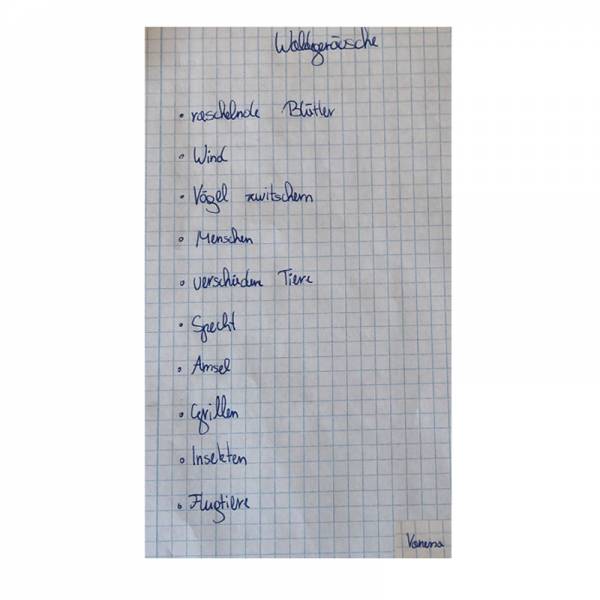 Waldgeräusche
• raschelnde Blätter
• Wind
• Vögel zwitschern
• Menschen
• verschiedene Tiere
• Specht
• Amsel
• Grillen
• Insekten
• Flugtiere
Vanessa